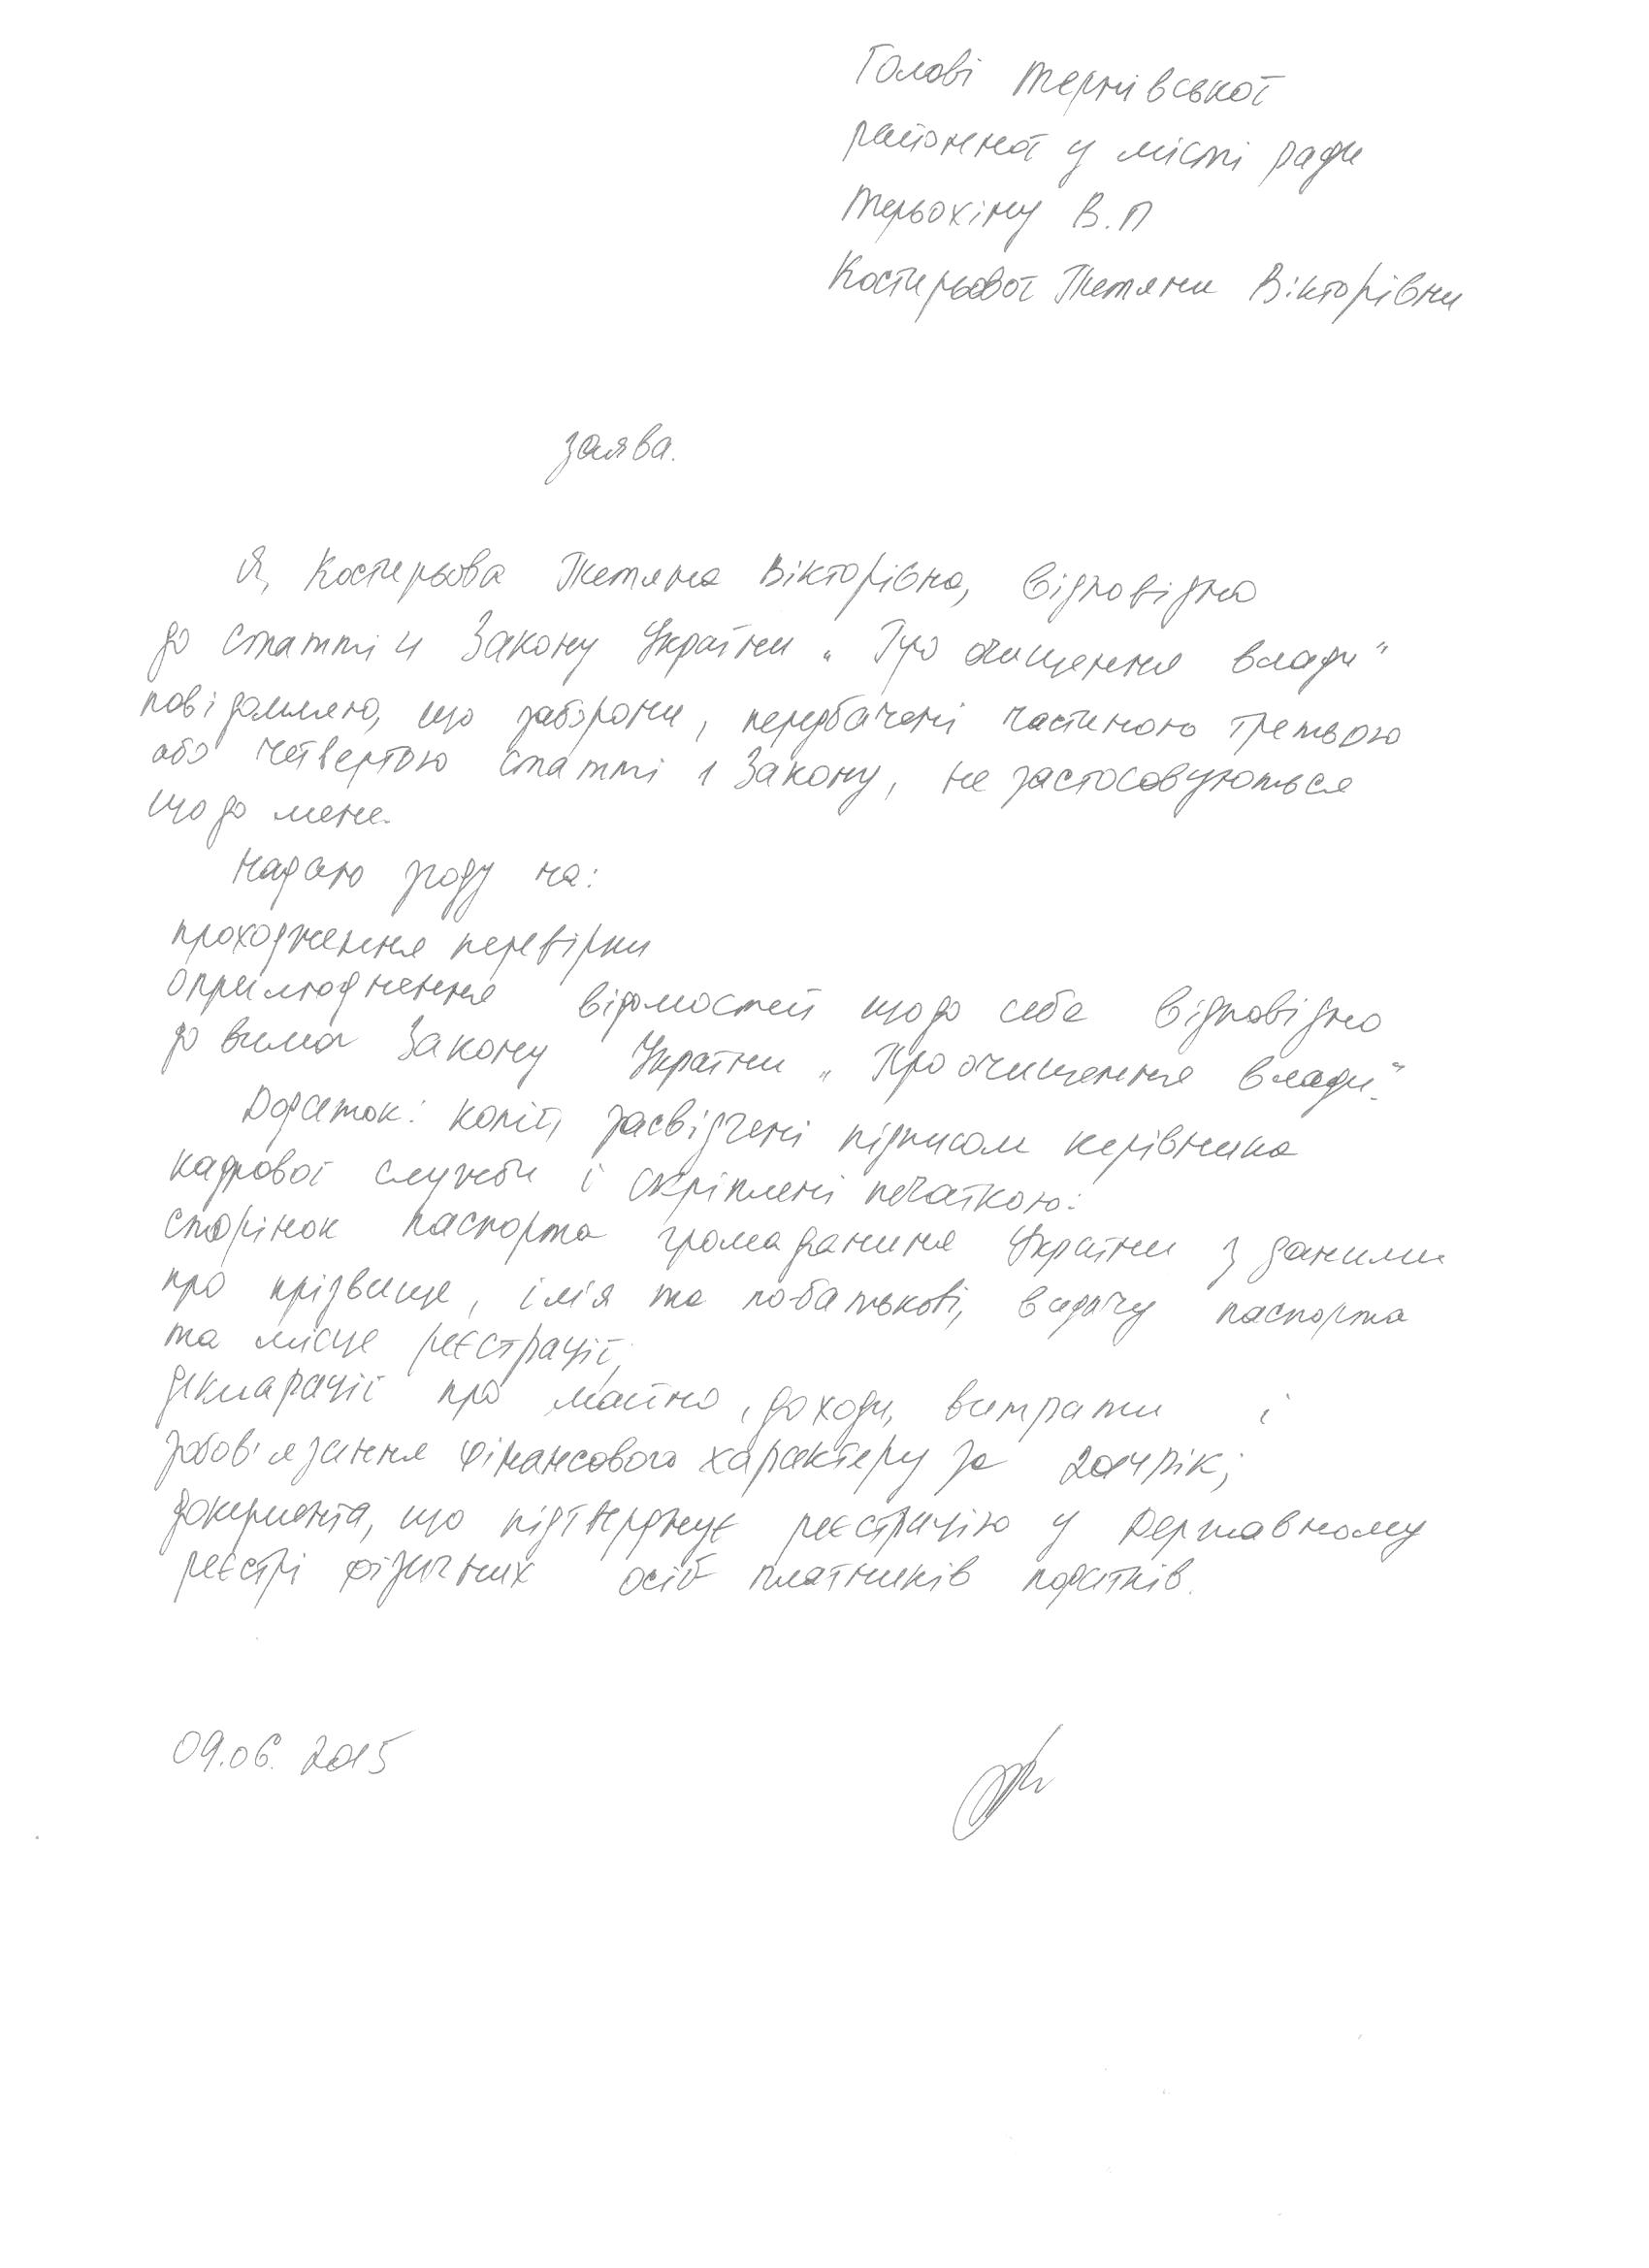 Голові Тернівської
районної у місті ради
Терьохіну В.П
Костирьової Тетяни Вікторівни
заява.
Я, Костирьова Тетяна Вікторівна, відповідно
до статті 4 Закону України „Про очищення влади"
повідомляю, що заборони, передбачені частиною третьою
або четвертою статті 1 Закону, не застосовуються
щодо мене.
Надаю згоду на:
проходження перевірки
оприлюднення відомостей щодо себе відповідно
до вимог Закону України „Про очищення влади."
Додаток: копії, засвідчені підписом керівника
кадрової служби і скріплені печаткою:
сторінок паспорта громадянина України з даними
про прізвище, ім'я та по батькові, видачу паспорта
та місце реєстрації;
декларації про майно, доходи, витрати і
зобов'язання фінансового характеру за 2014 рік;
документа, що підтверджує реєстрацію у Державному
реєстрі фізичних осіб платників податків.
09.06.2015